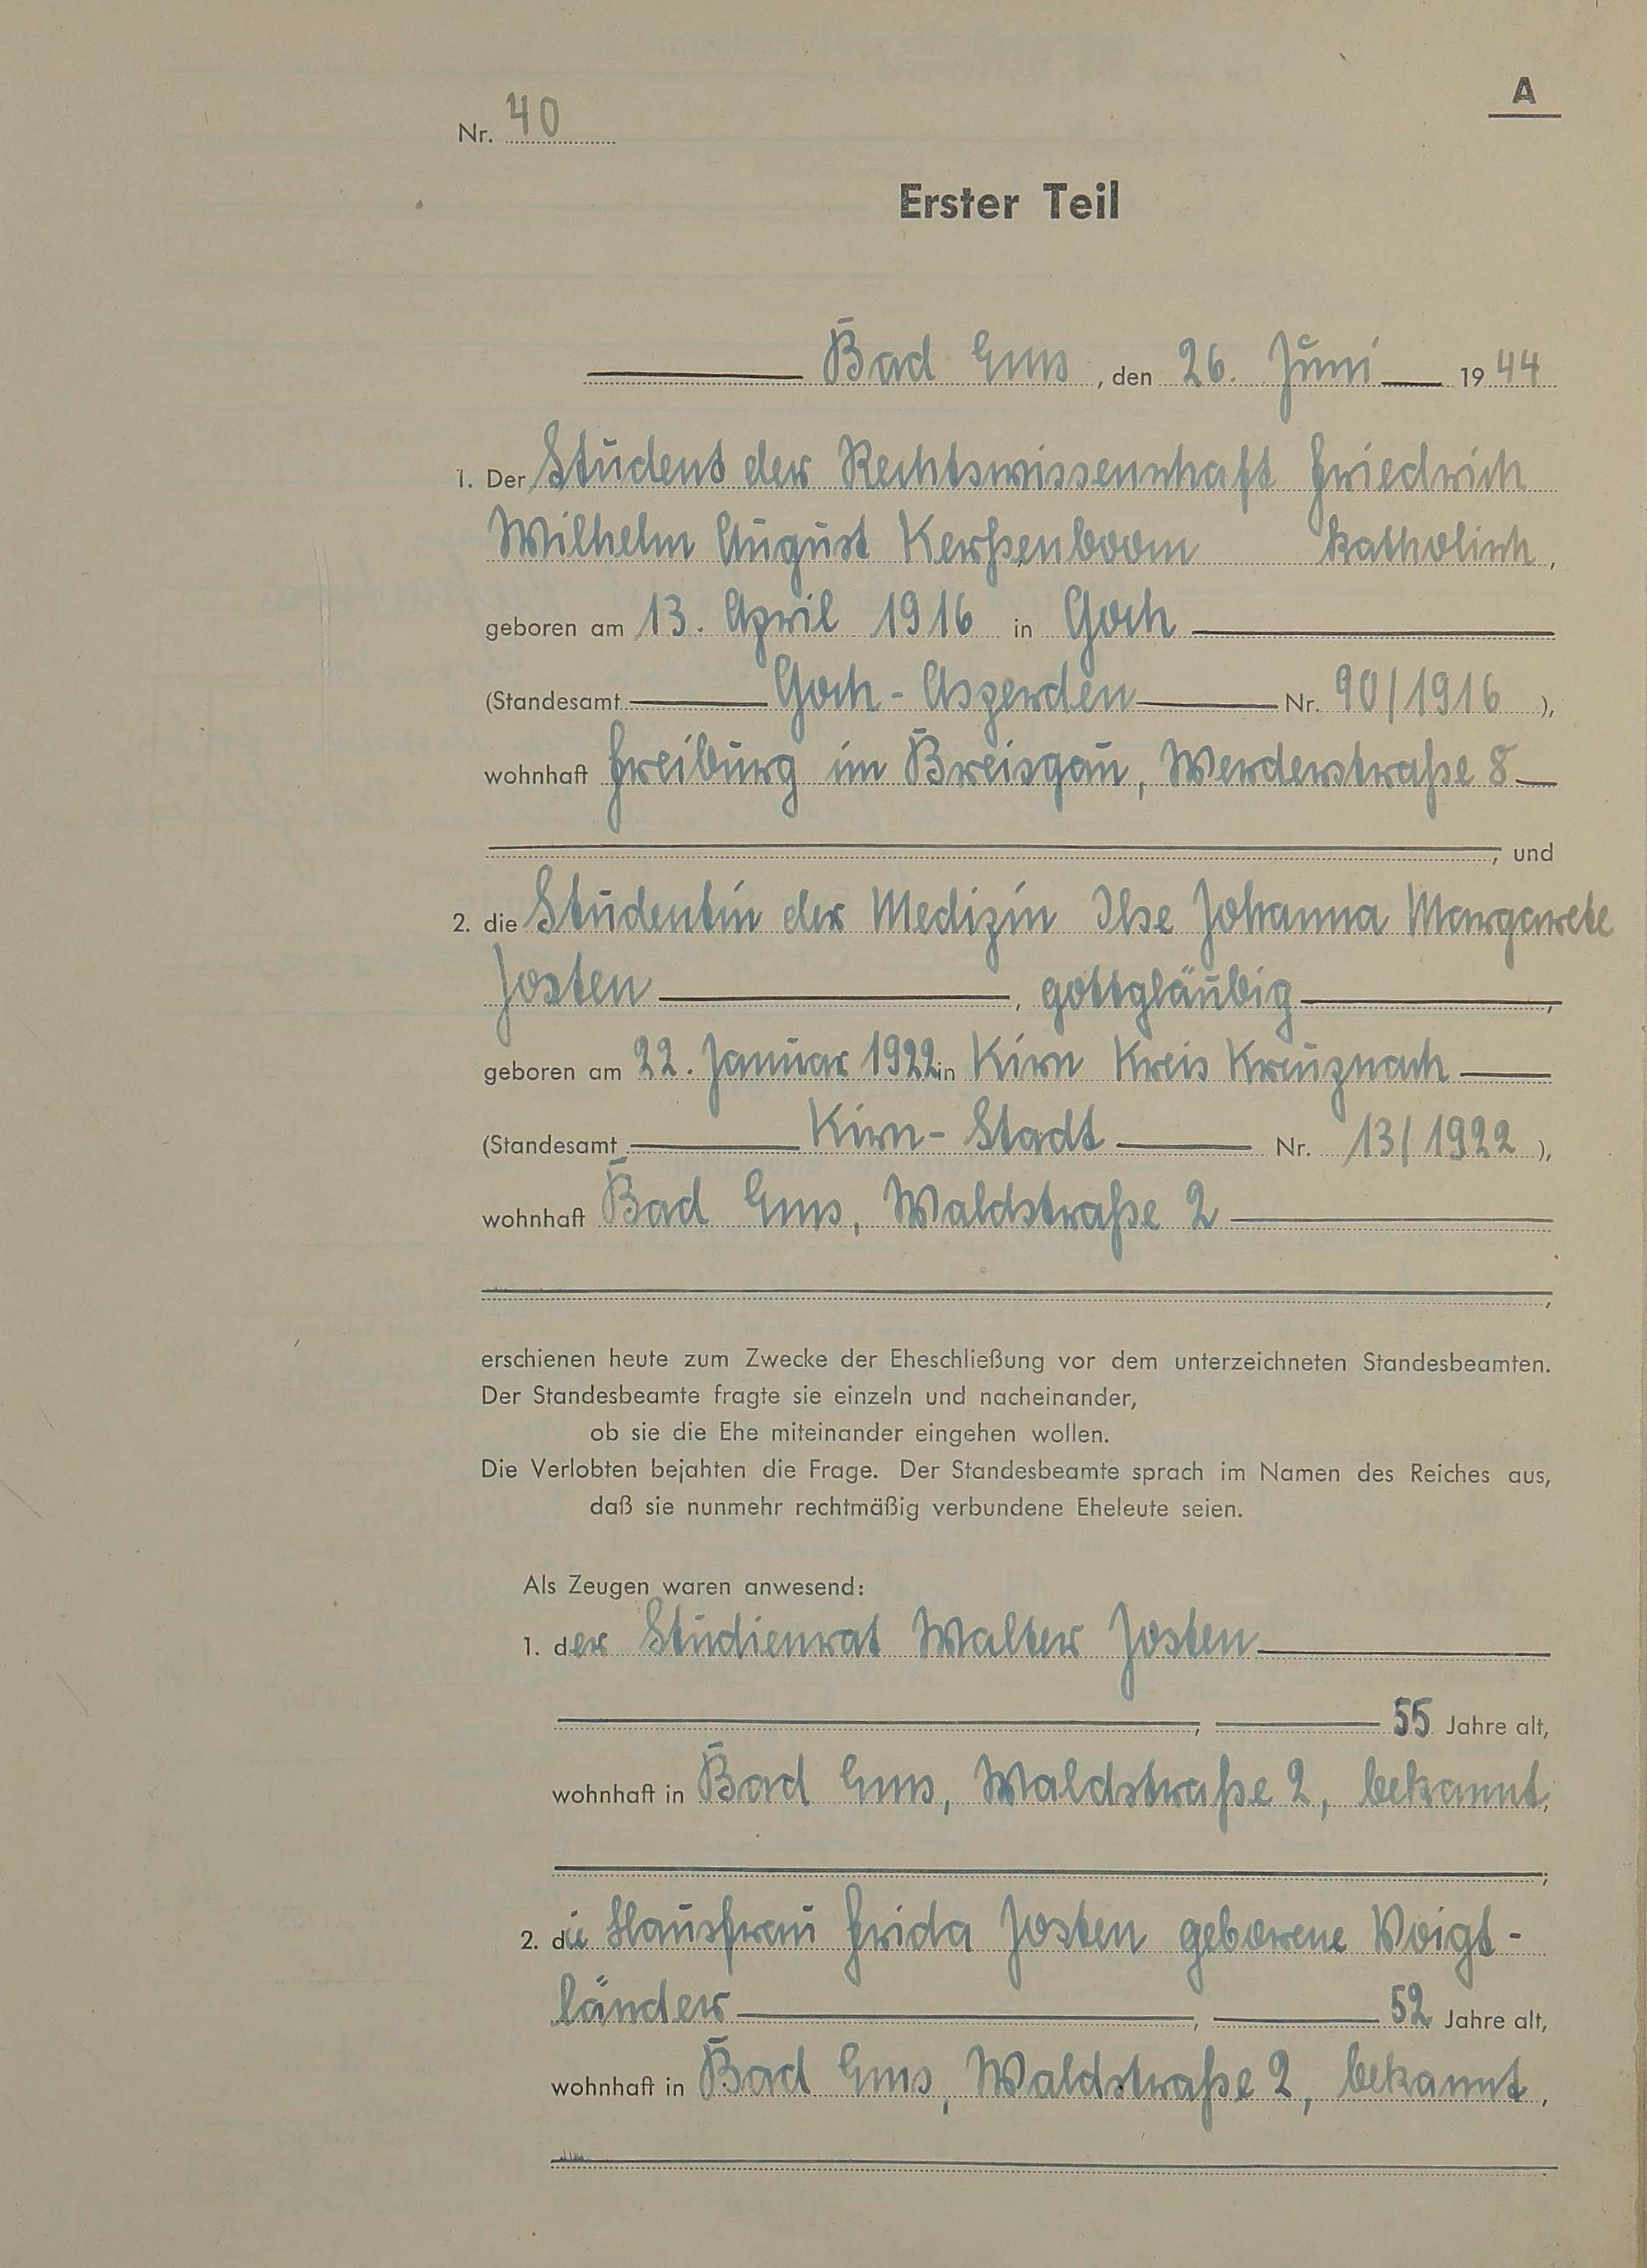 A
Nr. 40
Erster Teil
Bad Ems, den 26. Juni 1944
1. Der Student der Rechtswissenschaft Friedrich
Wilhelm August Kerßenboom katholisch,
geboren am 13. April 1916 in Goch
(Standesamt Goch-Asperden Nr. 90/1916),
wohnhaft Freiburg im Breisgau, Werderstraße 8
, und
2. die Studentin der Medizin Ilse Johanna Margarete
Josten, gottgläubig,
geboren am 22. Januar 1922 in Kirn Kreis Kreuznach
(Standesamt Kirn-Stadt Nr. 13/1922),
wohnhaft Bad Ems, Waldstraße 2
,
erschienen heute zum Zwecke der Eheschließung vor dem unterzeichneten Standesbeamten.
Der Standesbeamte fragte sie einzeln und nacheinander,
ob sie die Ehe miteinander eingehen wollen.
Die Verlobten bejahten die Frage. Der Standesbeamte sprach im Namen des Reiches aus,
daß sie nunmehr rechtmäßig verbundene Eheleute seien.
Als Zeugen waren anwesend:
1. der Studienrat Walter Josten
, 55 Jahre alt,
wohnhaft in Bad Ems, Waldstraße 2, bekannt,
;
2. die Hausfrau Frida Josten geborene Voigt-
länder, 52 Jahre alt,
wohnhaft in Bad Ems, Waldstraße 2, bekannt,